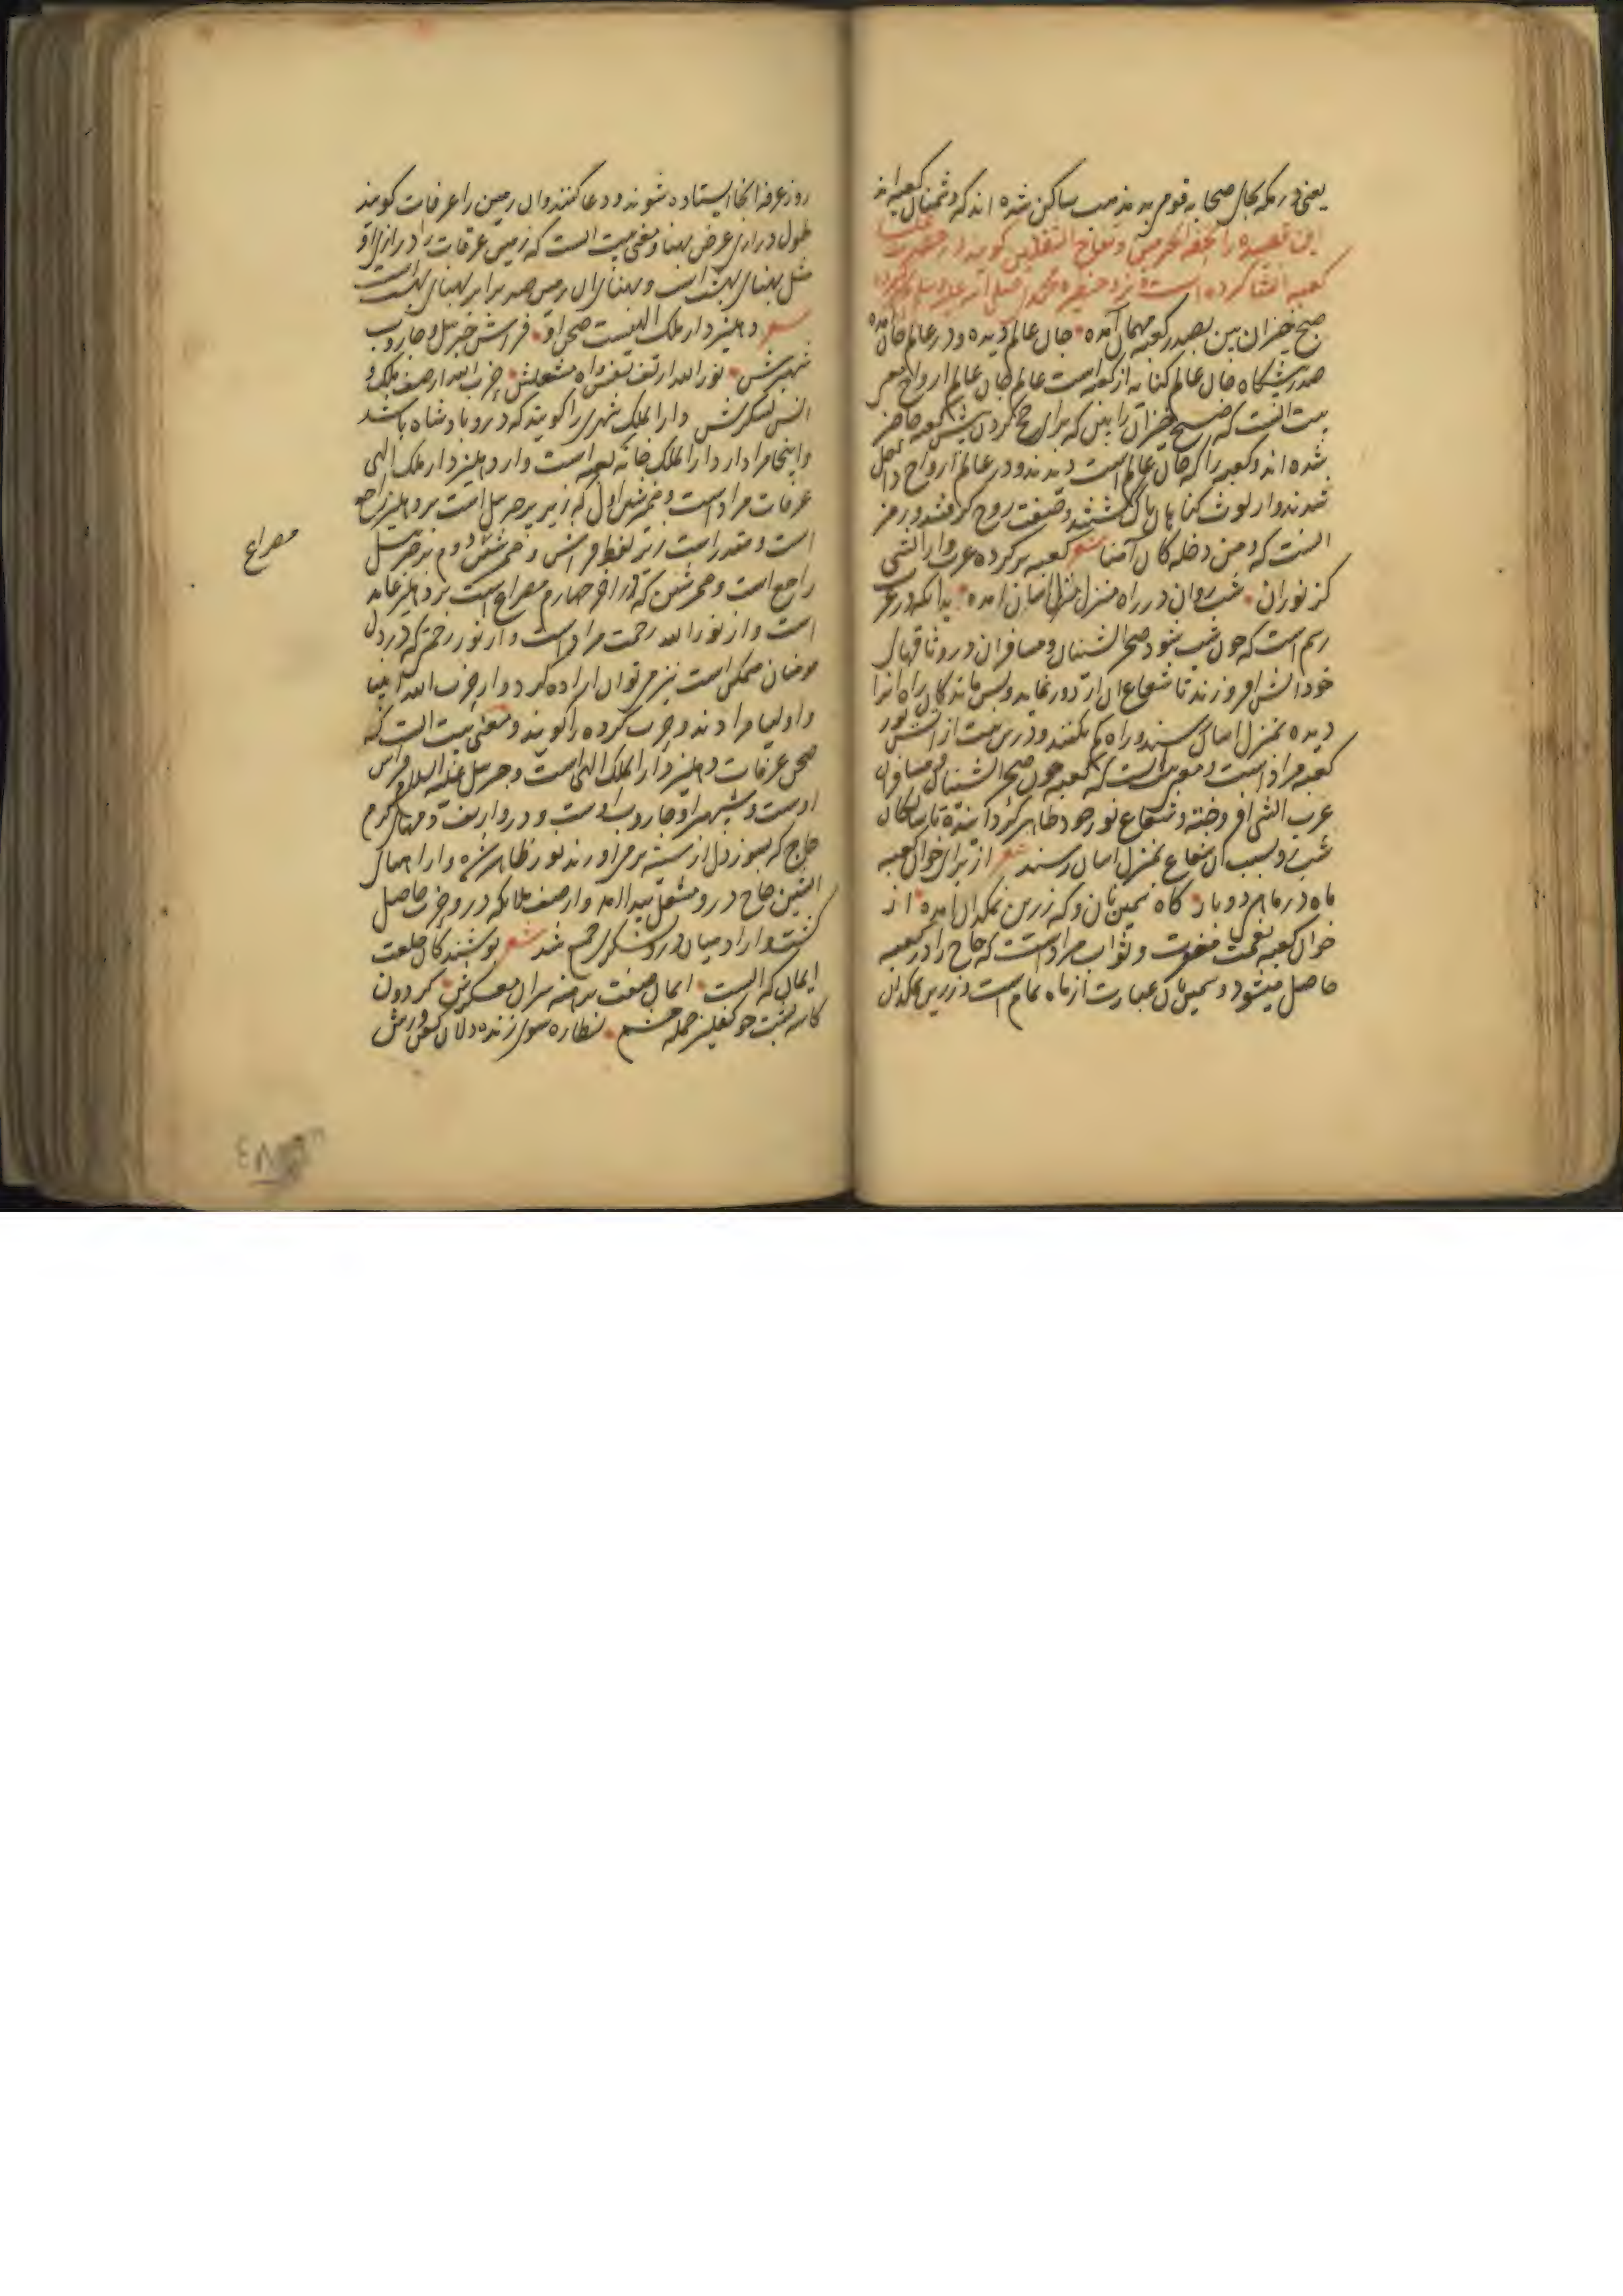 یعنی در مکه بجای صحابه قومی بد مذهب ساکن شده اند که دشمنان کعبه اند
این قصیده را تحفة الحرمین و تفاح الثقلین گویند از
کعبه انشا کرده است نزد حظیره محمد
صبح خیزان بین بصدر کعبه مهمان آمده جان عالم دیده و در عالم جان آمده
صدر پیشگاه جان عالم کنایه از کعبه است عالم جان عالم ارواح معنی
بیت آنست که صبح خیزان را ببین که برای حج کردن پیش کعبه حاضر
شده اند و کعبه را که جان عالم است دیدند و در عالم ارواح داخل
شدند و از لوث گناهان پاک گشتند و صفت روح گرفتند و رمز
اینست که و من دخله کان آمنا شعر کعبه بر کرده عرب وار آتشی
کز نور آن شب روان در راه منزل منزل آسان آمده بدانکه در عرب
رسم است که چون شب شود صحرا نشینان و مسافران در وثاقهای
خود آتش افروزند تا شعاع آن از دور نماید و پس ماندگان راه آنرا
دیده بمنزل آسان رسند و راه گم نکنند و درین بیت از آتش نور
کعبه مراد است و معنی آنست که کعبه چون صحرا نشینان و مسافران
عرب آتش افروخته و شعاع نور خود ظاهر گردانیده تا سالکان
شب رو بسبب آن شعاع بمنزل آسان رسند شعر از برای خوان کعبه
ماه در ماهی دو بار گاه سیمین نان و گه زرین نمکدان آمده از
خوان کعبه نعمت مغفرت و ثواب مراد است که حاج را در کعبه
حاصل میشود و سیمین نان عبارت از ماه تمام است و زرین نمکدان
روز عرفه آنجا ایستاده شوند و دعا کنند و آن زمین را عرفات گویند
طول درازی عرض پهنا و معنی بیت آنست که زمین عرفات را درازی او
مثل پهنای بهشت است و پهنای آن زمین صد برابر پهنای بهشت است
شعر دهلیز دار ملک الهیست صحن او فراش جبرئیل و جاروب
شهپرش نور الله از تف نفس و آه مشعلش حزب الله از صف ملک و
انس لشکرش دار الملک شهری را گویند که درو پادشاه باشد
و اینجا مراد از دار الملک خانه کعبه است و از دهلیز دار ملک الهی
عرفات مراد است و ضمیر شین اول که زیر پر جبرئیل است بر دهلیز راجع
است و مقدر است زیر لفظ فراش و ضمیر شین دوم بر جبرئیل
راجع است و ضمیر شین که در آخر چهارم مصراع است بر دهلیز عاید
است و از نور الله رحمت مراد است و از نور رحمتی که در دل
مومنان متمکن است نیز می توان اراده کرد و از حزب الله انبیا
و اولیا مرادند و حزب گروه را گویند و معنی بیت آنست که
صحن عرفات دهلیز دار الملک الهی است و جبرئیل علیه السلام فراش
اوست و شهپر او جاروب اوست و درو از تف و مهیای گرم
حاج که بسوز دل از سینه بر می آورند نور ظاهر شده و از آههای
آتشین حاج درو مشعل پیدا آمد و از صف ملائکه درو حزب حاصل
گشت و از آدمیان درو لشکری جمع شد شعر پوشندگان خلعت
ایمان که الست ایمان صفت برهنه سران معسکرش گردون
کاسه پشت چو کفلیز جمله چشم نظاره سوی زنده دلان کفن ورش
مصراع